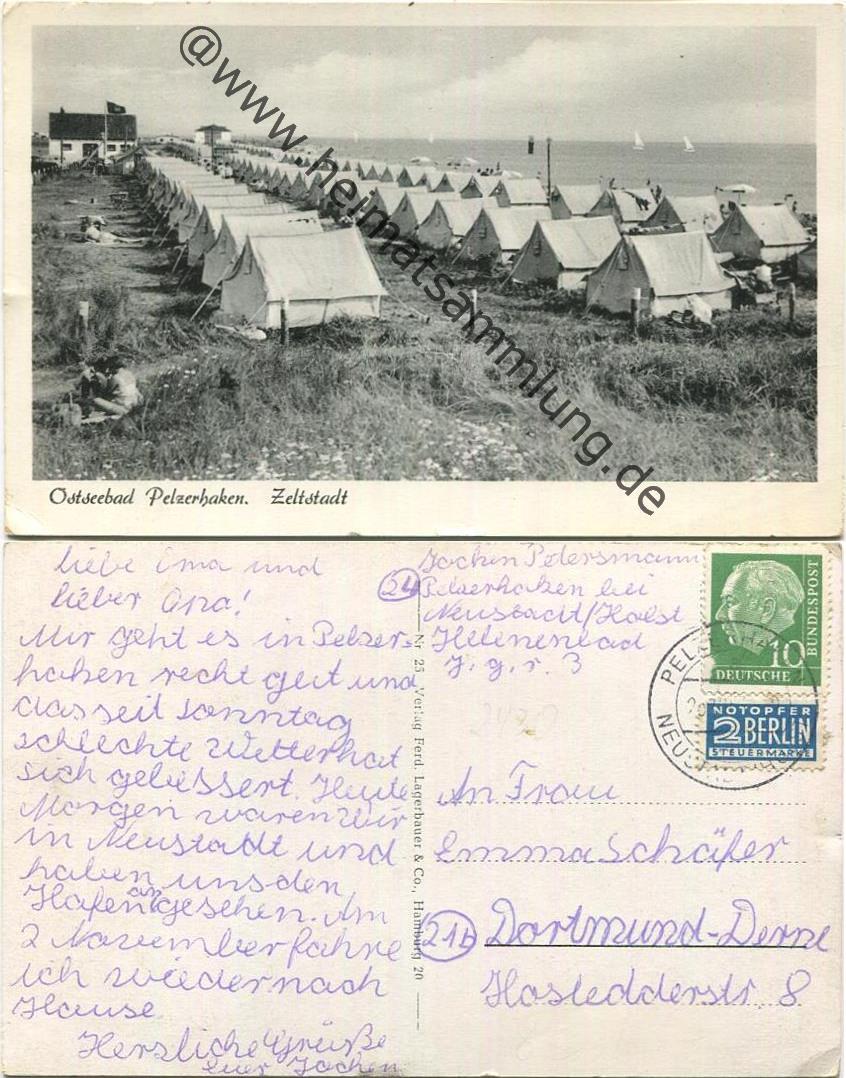 @www.heimatsammlung.de
Ostseebad Pelzerhaken. Zeltstadt
liebe Oma und
lieber Opa!
Mir geht es in Pelzer-
haken recht gut und
das seit Sonntag
schlechte Wetter hat
sich gebessert. Heute
Morgen waren wir
in Neustadt und
haben uns den
Hafen angesehen. Am
2 November fahre
ich wieder nach
Hause.
Herzliche Grüße
euer Jochen
Nr. 25 Verlag Ferd. Lagerbauer & Co., Hamburg 20
Jochen Petersmann
24 Pelzerhaken bei
Neustadt/Holst
Helenenbad
J. g. r. 3
10
DEUTSCHE
BUNDESPOST
NOTOPFER
2 BERLIN
STEUERMARKE
PELZERHAKEN
NEUSTADT
An Frau
Emma Schäfer
21b Dortmund-Derne
Hostedderstr. 8